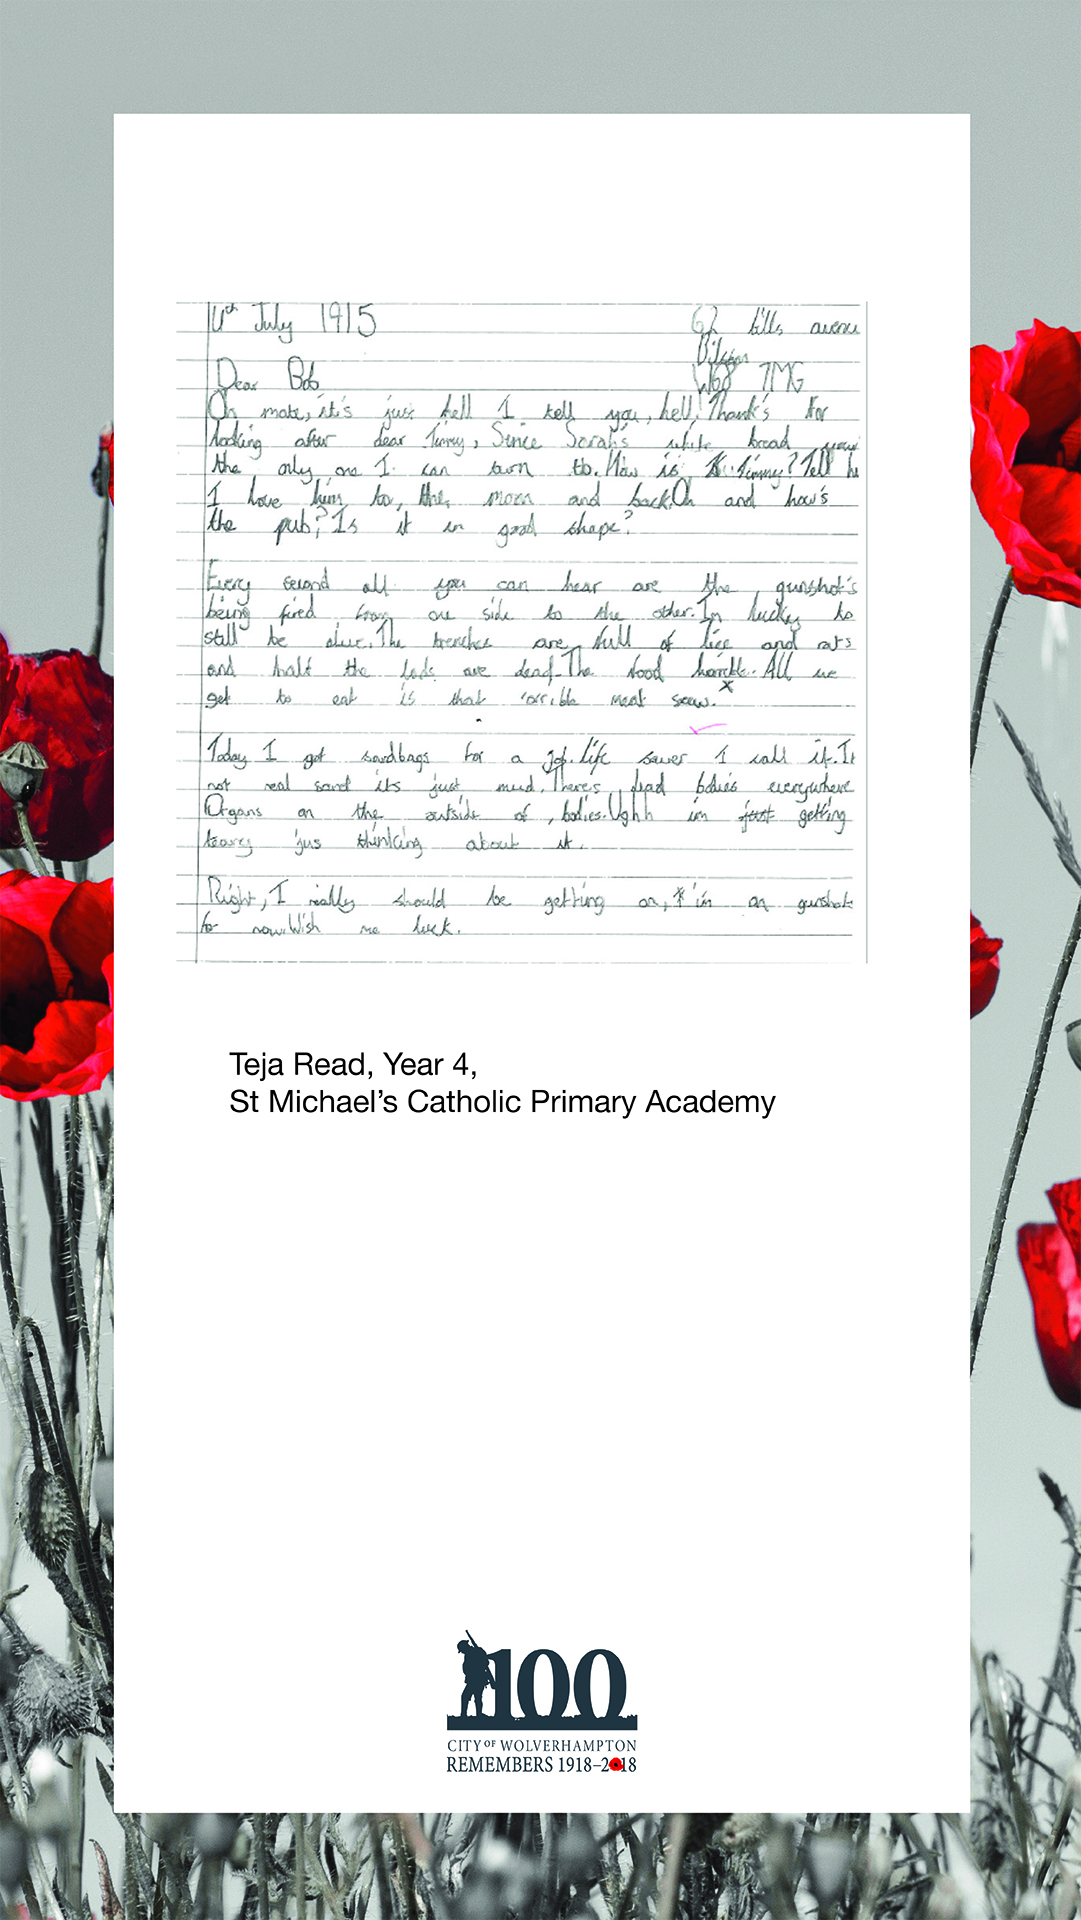 11th July 1915
62 bills avenue
Bilston
WG8 7MG
Dear Bob
Oh mate, it's just hell I tell you, hell! Thank's for
looking after dear Timmy, Since Sarahs white bread your
the only one I can turn to. How is Timmy? Tell he
I love him to, the moon and back. Oh and how's
the pub? Is it in good shape?
Every second all you can hear are the gunshot's
being fired from one side to the other. Im lucky to
still be alive. The trenches are full of lice and rats
and half the lads are dead. The food horrible. All we
get to eat is that 'orrible meat stew.
Today I got sandbags for a job. life saver I call it. It
not real sand its just mud. There's dead bodies everywhere
Organs on the outside of , bodies. Ughh im just getting
teary jus thinking about it.
Right, I really should be getting on, im on gunshot
for now. Wish me luck.
Teja Read, Year 4,
St Michael's Catholic Primary Academy
100
CITY OF WOLVERHAMPTON
REMEMBERS 1918–2018